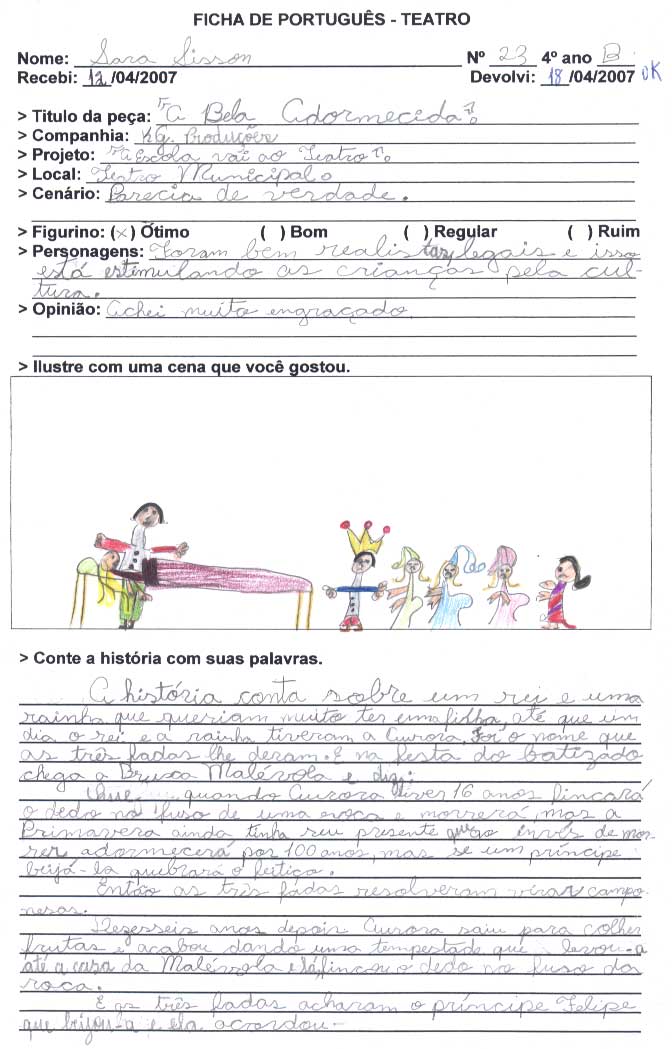 FICHA DE PORTUGUÊS - TEATRO
Nome: Sara Sisson Nº 23 4º ano B
Recebi: 12/04/2007 Devolvi: 18/04/2007 OK
> Titulo da peça: "A Bela Adormecida".
> Companhia: KG. Produções
> Projeto: "A Escola vai ao Teatro".
> Local: Teatro Municipal.
> Cenário: Parecia de verdade.
> Figurino: (x) Ótimo ( ) Bom ( ) Regular ( ) Ruim
> Personagens: Foram bem realistas, legais e isso
está estimulando as crianças pela cul-
tura.
> Opinião: Achei muito engraçado.
> Ilustre com uma cena que você gostou.
> Conte a história com suas palavras.
A história conta sobre um rei e uma
rainha que queriam muito ter uma filha, até que um
dia o rei e a rainha tiveram a Aurora. Foi o nome que
as três fadas lhe deram. E na festa do batizado
chega a Bruxa Malévola e diz:
Que quando Aurora tiver 16 anos fincará
o dedo no fuso de uma roca e morrerá, mas a
Primavera ainda tinha seu presente que ao invés de mor-
rer adormecerá por 100 anos, mas se um príncipe
beijá-la quebrará o feitiço.
Então as três fadas resolveram virar campo-
nesas.
Dezesseis anos depois Aurora saiu para colher
frutas e acabou dando uma tempestade que levou-a
até a casa da Malévola e lá, fincou o dedo no fuso da
roca.
E as três fadas acharam o príncipe Felipe
que beijou-a e ela acordou-